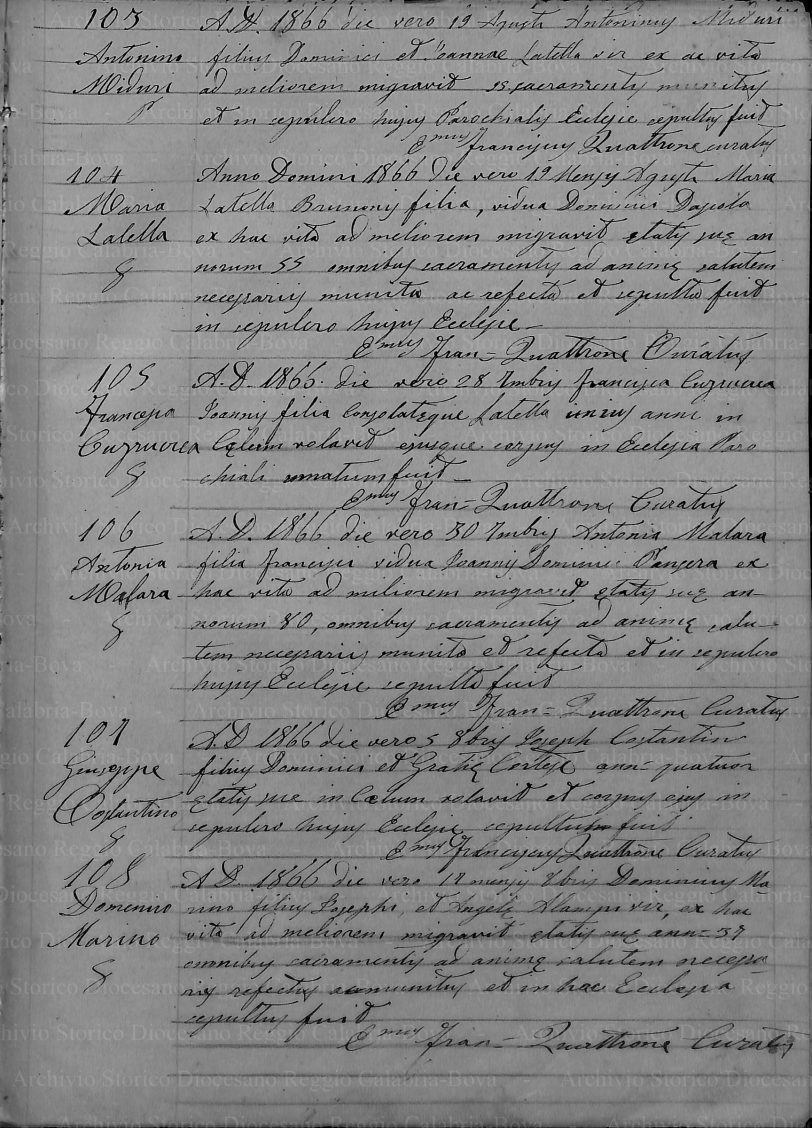 103
Antonino
Miduri
A.D. 1866 die vero 19 Agusti Antoninus Miduri
filius Dominici et Joannae Latella vir ex ac vita
ad meliorem migravit sacramentis munitus
et in sepulcro hujus Parochialis Eclesie sepultus fuit
Franciscus Quattrone curatus
104
Maria
Latella
Anno Domini 1866 die vero 19 Mensis Agusti Maria
Latella Brunonis filia, vidua Dominici
ex hac vita ad meliorem migravit etatis sue an
norum 55 omnibus sacramentis ad anime salutem
necessariis munita ac refecta et sepulta fuit
in sepulcro hujus Eclesie
Fran= Quattrone Curatus
105
Francesca
Cuzzucrea
A.D. 1866. die vero 28 7mbris Francisca Cuzzucrea
Joannis filia Consolateque Latella unius anni in
Celum volavit ejusque corpus in Eclesia Paro
chiali umatum fuit
Fran= Quattrone Curatus
106
Antonia
Malara
A.D. 1866 die vero 30 7mbris Antonia Malara
filia Francisci vidua Joannis Dominici ex
hac vita ad miliorem migravit etatis sue an-
norum 80, omnibus sacramentis ad anime salu-
tem necessariis munita et refecta et in sepulcro
hujus Eclesie sepulta fuit
Fran= Quattrone Curatus
107
Giuseppe
Costantino
A.D 1866 die vero 5 8bris Joseph Costantin
filius Dominici et Gratie Cortese ann= quatuor
etatis sue in Celum volavit et corpus ejus in
sepulcro hujus Eclesie sepultum fuit
Franciscus Quattrone Curatus
108
Domenico
Marino
A.D. 1866 die vero 17 mensis 8bris Dominicus Ma-
rino filius Josephi, et Angele Alampi vir, ex hac
vita ad meliorem migravit etatis sue ann= 37
omnibus sacramentis ad anime salutem necessa-
riis refectus munitus et in hac Eclesia
sepultus fuit
Fran= Quattrone Curatus
Archivio Storico Diocesano Reggio Calabria-Bova